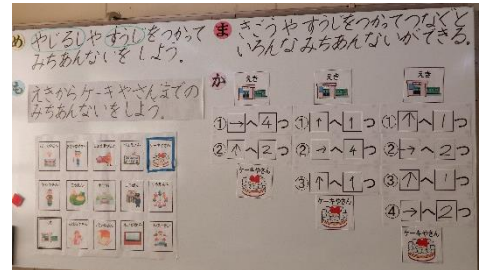 め やじるしや すうじをつかって
みちあんないを しよう.
も えきからケーキやさんまでの
みちあんないをしよう.
ケーキやさん
えき
ま きごうや すうじをつかってつなぐと
いろんな みちあんないができる.
か
えき
① → へ 4 つ
② ↑ へ 2 つ
ケーキやさん
えき
① ↑ へ 1 つ
② → へ 4 つ
③ ↑ へ 1 つ
ケーキやさん
えき
① ↑ へ 1 つ
② → へ 2 つ
③ ↑ へ 1 つ
④ → へ 2 つ
ケーキやさん